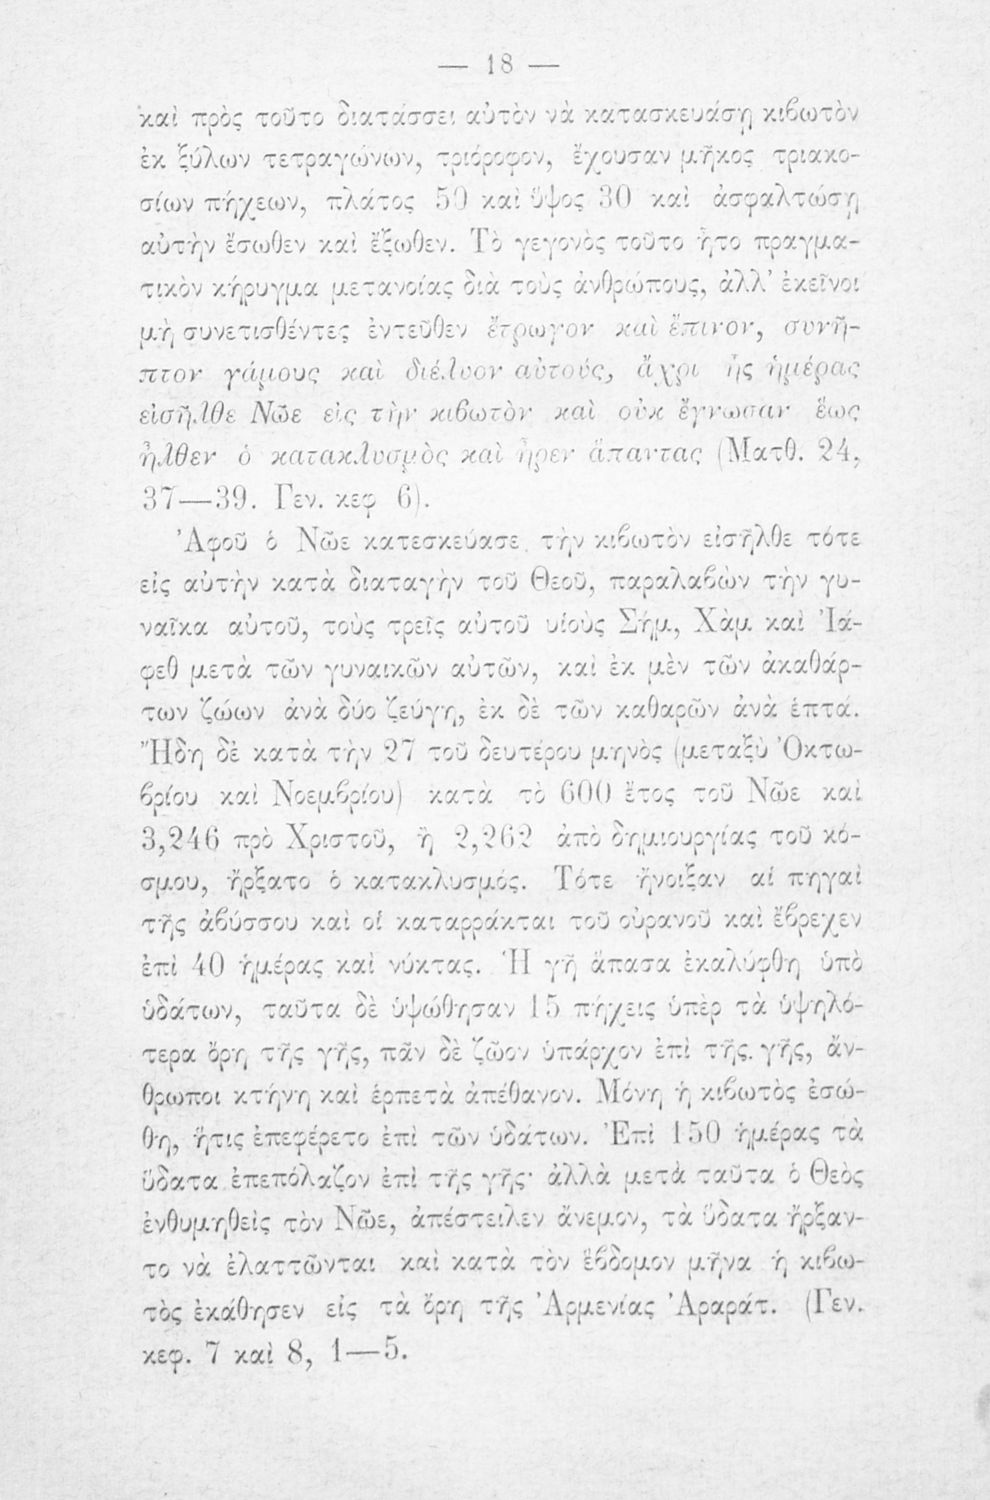 — 18 —
καὶ πρὸς τοῦτο διατάσσει αὐτὸν νὰ κατασκευάσῃ κιβωτὸν
ἐκ ξύλων τετραγώνων, τριόροφον, ἔχουσαν μῆκος τριακο-
σίων πήχεων, πλάτος 50 καὶ ὕψος 30 καὶ ἀσφαλτώσῃ
αὐτὴν ἔσωθεν καὶ ἔξωθεν. Τὸ γεγονὸς τοῦτο ἦτο πραγμα-
τικὸν κήρυγμα μετανοίας διὰ τοὺς ἀνθρώπους, ἀλλ' ἐκεῖνοι
μὴ συνετισθέντες ἐντεῦθεν ἔτρωγον καὶ ἔπινον, συνῆ-
πτον γάμους καὶ διέλυον αὐτούς, ἄχρι ἧς ἡμέρας
εἰσῆλθε Νῶε εἰς τὴν κιβωτὸν καὶ οὐκ ἔγνωσαν ἕως
ἦλθεν ὁ κατακλυσμὸς καὶ ἦρεν ἅπαντας (Ματθ. 24,
37—39. Γεν. κεφ 6).
Ἀφοῦ ὁ Νῶε κατεσκεύασε τὴν κιβωτὸν εἰσῆλθε τότε
εἰς αὐτὴν κατὰ διαταγὴν τοῦ Θεοῦ, παραλαβὼν τὴν γυ-
ναῖκα αὐτοῦ, τοὺς τρεῖς αὐτοῦ υἱοὺς Σήμ, Χὰμ καὶ Ἰά-
φεθ μετὰ τῶν γυναικῶν αὐτῶν, καὶ ἐκ μὲν τῶν ἀκαθάρ-
των ζώων ἀνὰ δύο ζεύγη, ἐκ δὲ τῶν καθαρῶν ἀνὰ ἑπτά.
Ἤδη δὲ κατὰ τὴν 27 τοῦ δευτέρου μηνὸς (μεταξὺ Ὀκτω-
βρίου καὶ Νοεμβρίου) κατὰ τὸ 600 ἔτος τοῦ Νῶε καὶ
3,246 πρὸ Χριστοῦ, ἢ 2,262 ἀπὸ δημιουργίας τοῦ κό-
σμου, ἤρξατο ὁ κατακλυσμός. Τότε ἤνοιξαν αἱ πηγαὶ
τῆς ἀβύσσου καὶ οἱ καταρράκται τοῦ οὐρανοῦ καὶ ἔβρεχεν
ἐπὶ 40 ἡμέρας καὶ νύκτας. Ἡ γῆ ἅπασα ἐκαλύφθη ὑπὸ
ὑδάτων, ταῦτα δὲ ὑψώθησαν 15 πήχεις ὑπὲρ τὰ ὑψηλό-
τερα ὄρη τῆς γῆς, πᾶν δὲ ζῶον ὑπάρχον ἐπὶ τῆς. γῆς, ἄν-
θρωποι κτήνη καὶ ἑρπετὰ ἀπέθανον. Μόνη ἡ κιβωτὸς ἐσώ-
θη, ἥτις ἐπεφέρετο ἐπὶ τῶν ὑδάτων. Ἐπὶ 150 ἡμέρας τὰ
ὕδατα ἐπεπόλαζον ἐπὶ τῆς γῆς· ἀλλὰ μετὰ ταῦτα ὁ Θεὸς
ἐνθυμηθεὶς τὸν Νῶε, ἀπέστειλεν ἄνεμον, τὰ ὕδατα ἤρξαν-
το νὰ ἐλαττῶνται καὶ κατὰ τὸν ἕβδομον μῆνα ἡ κιβω-
τὸς ἐκάθησεν εἰς τὰ ὄρη τῆς Ἀρμενίας Ἀραράτ. (Γεν.
κεφ. 7 καὶ 8, 1—5.